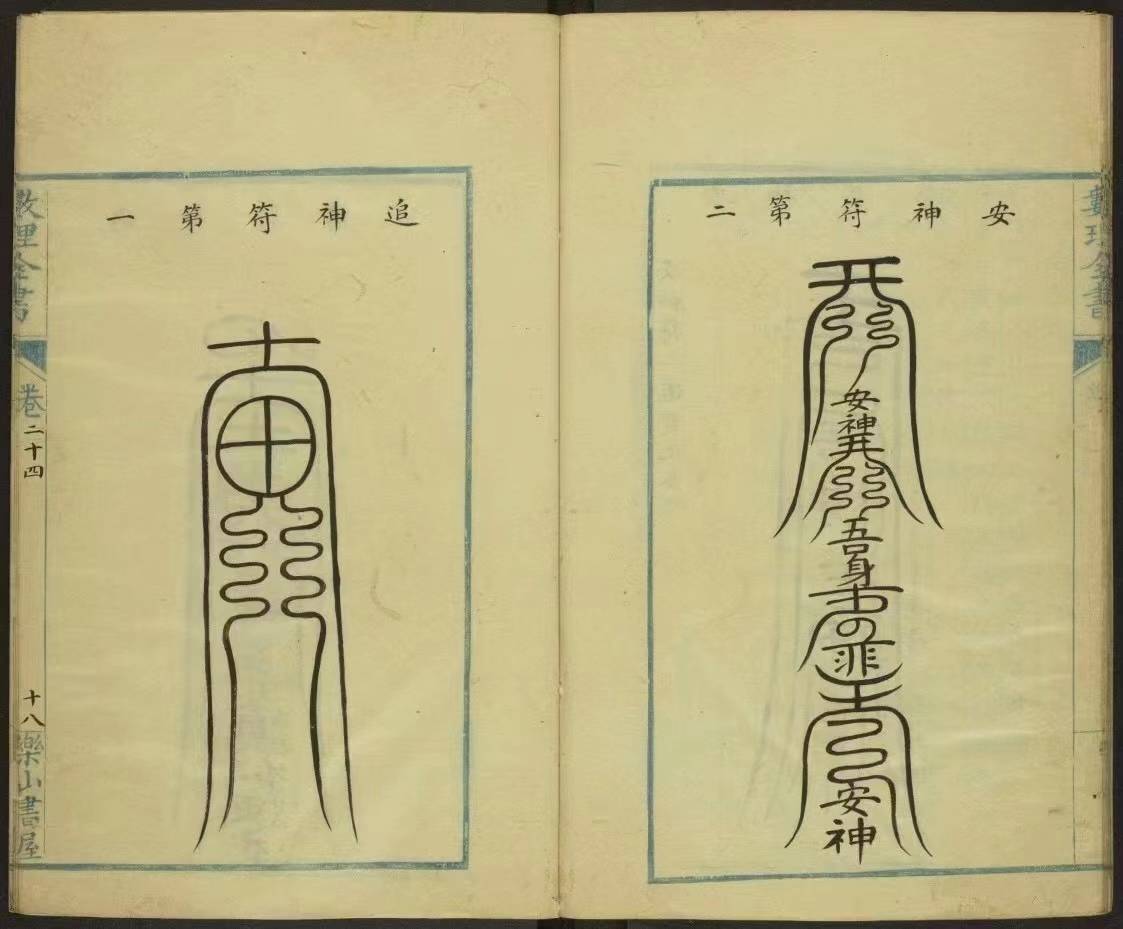 數理全書
安神符第二
安神
吾身
安神
追神符第一
數理全書
卷二十四
十八
樂山書屋